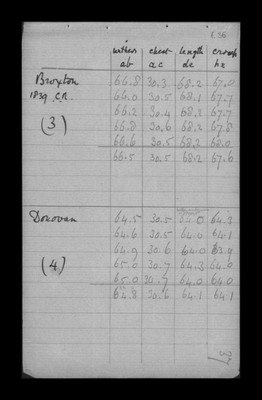 withers chest length croup
ab ac dc hc
Broxton 66.8 30.3 68.2 67.0
1839. C.R. 66.0 30.5 68.1 67.7
66.2 30.4 68.2 67.7
(3) 66.8 30.6 68.2 67.8
66.6 30.5 68.2 68.0
66.5 30.5 68.2 67.6
Donovan 64.5 30.5 64.3
64.6 30.5 64.0 64.1
64.9 30.6 64.0
(4) 65.0 30.7 64.3 64.0
65.0 30.7 64.0 64.0
64.8 30.6 64.1 64.1
37